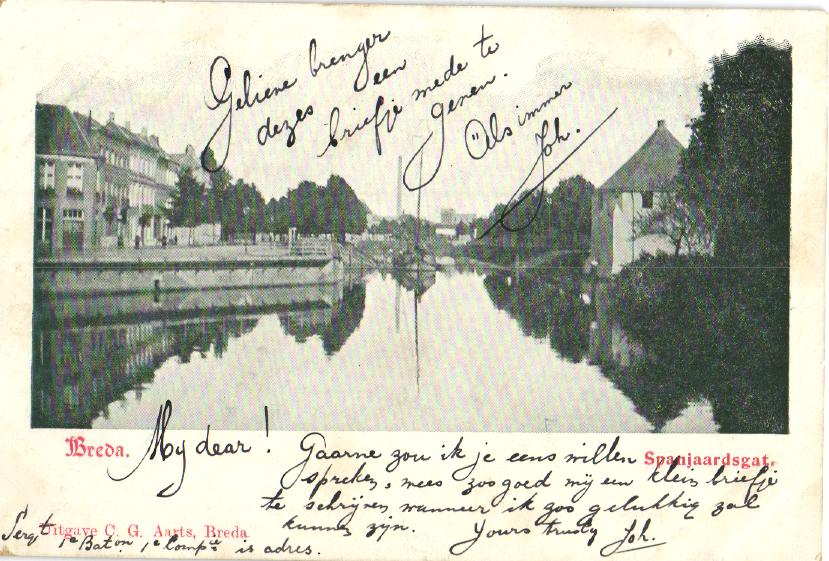 Geliene brenger
dezes een
briefje mede te
genen.
"Als immer
Joh.
Breda.
My dear!
Gaarne zou ik je eens willen
Spanjaardsgat.
spreken, wees zoo goed mij een klein briefje
te schrijven wanneer ik zoo gelukkig zal
kunnen zijn. Yours trusty Joh.
Uitgave C. G. Aarts, Breda
Sergt 1e Baton 1e Compie is adres.